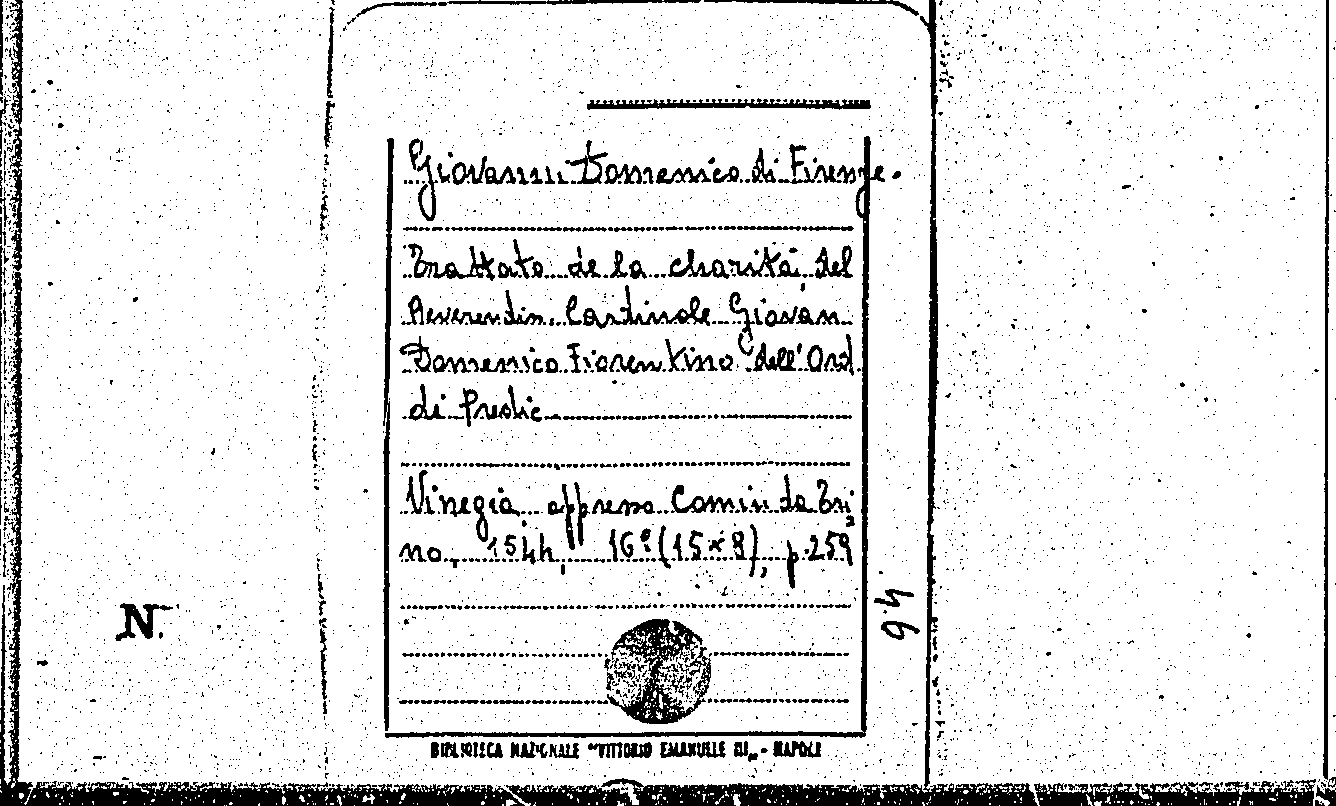 Giovanni Domenico di Firenze.
Trattato de la charità del
Reverendin. Cardinale Giovan
Domenico Fiorentino dell'Ord.
di Predic.
Vinegia appresso Comin da Tri
no, 1544, 16º (15x8), p. 259
94
N.
BIBLIOTECA NAZIONALE "VITTORIO EMANUELE III„ - NAPOLI